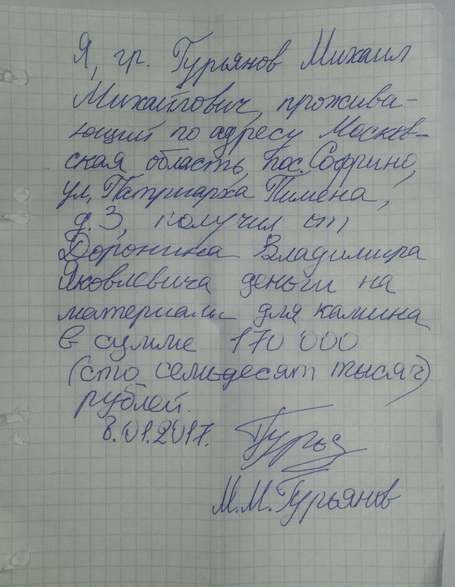 Я, гр. Гурьянов Михаил
Михайлович, прожива-
ющий по адресу Москов-
ская область, пос. Софрино,
ул. Патриарха Пимена,
д. 3, получил от
Доронина Владимира
Яковлевича деньги на
материалы для камина
в сумме 170 000
(сто семьдесят тысяч)
рублей.
8.01.2017. Гурья
М.М. Гурьянов